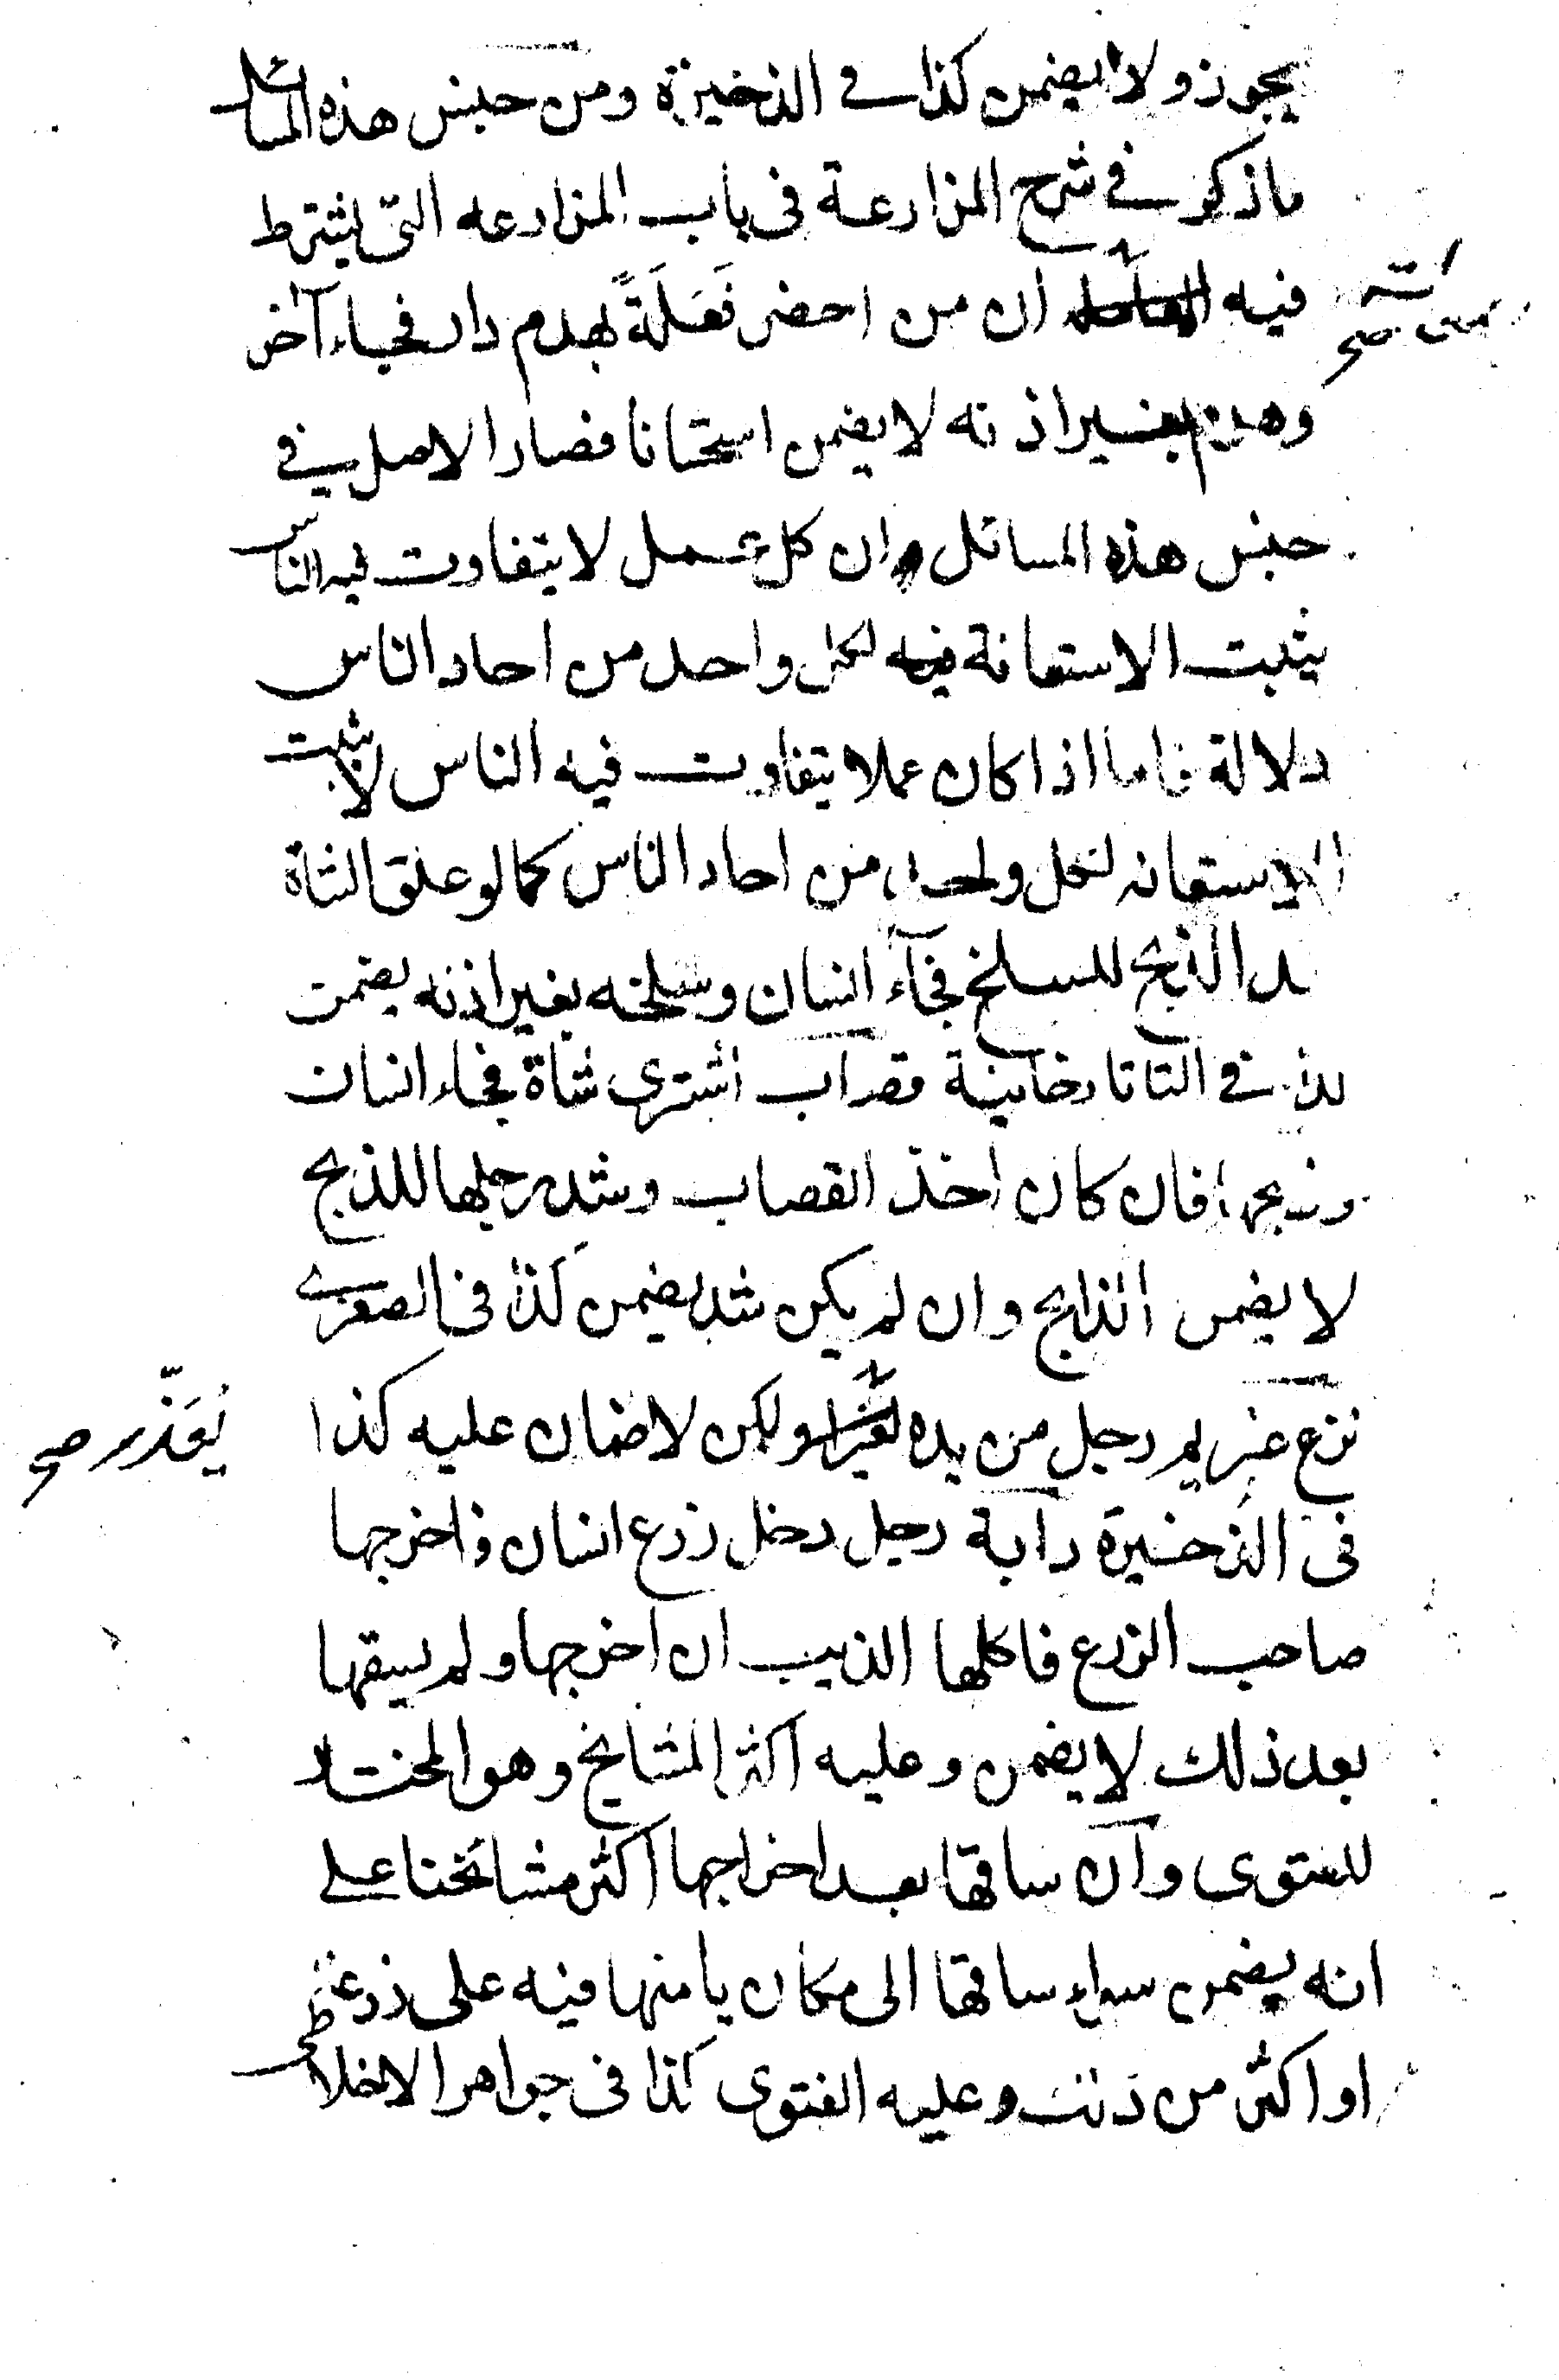 يجوز ولا يضمن كذا في الذخيرة ومن جنس هذه المسائل
ما ذكر في شرح المزارعة في باب المزارعه التى يشترط
فيه ان من احضر فَعَلَةً لهدم دار فجاء آخر
وهدم بغير اذنه لا يضمن استحسانا فصار الاصل في
جنس هذه المسائل ان كل عمل لا يتفاوت فيه الناس
يثبت الاستعانة فيه لكل واحد من احاد الناس
دلالة فاما اذا كان عملا يتفاوت فيه الناس لا يثبت
الاستعانه لكل واحد من احاد الناس كما لو علق الشاة
بعد الذبح للسلخ فجآء انسان وسلخه بغير اذنه يضمن
كذا في التاتارخانية قصاب اشترى شاة فجاء انسان
وذبحها فان كان اخذ القصاب وشد رجلها للذبح
لا يضمن الذابح وان لم يكن شد يضمن كذا في الصغرى
نزع غريم رجل من يده ولكن لا ضمان عليه كذا
يُعَذّر صح
في الذخيرة دابة رجل دخل زرع انسان فاخرجها
صاحب الزرع فاكلها الذيب ان اخرجها ولم يسقها
بعد ذلك لا يضمن وعليه اكثر المشايخ وهو المختار
للفتوى وان ساقها بعد اخراجها اكثر مشائخنا على
انه يضمن سواء ساقها الى مكان يامنها فيه على زرعه
او اكثر من ذلك وعليه الفتوى كذا في جواهر الاخلاطى